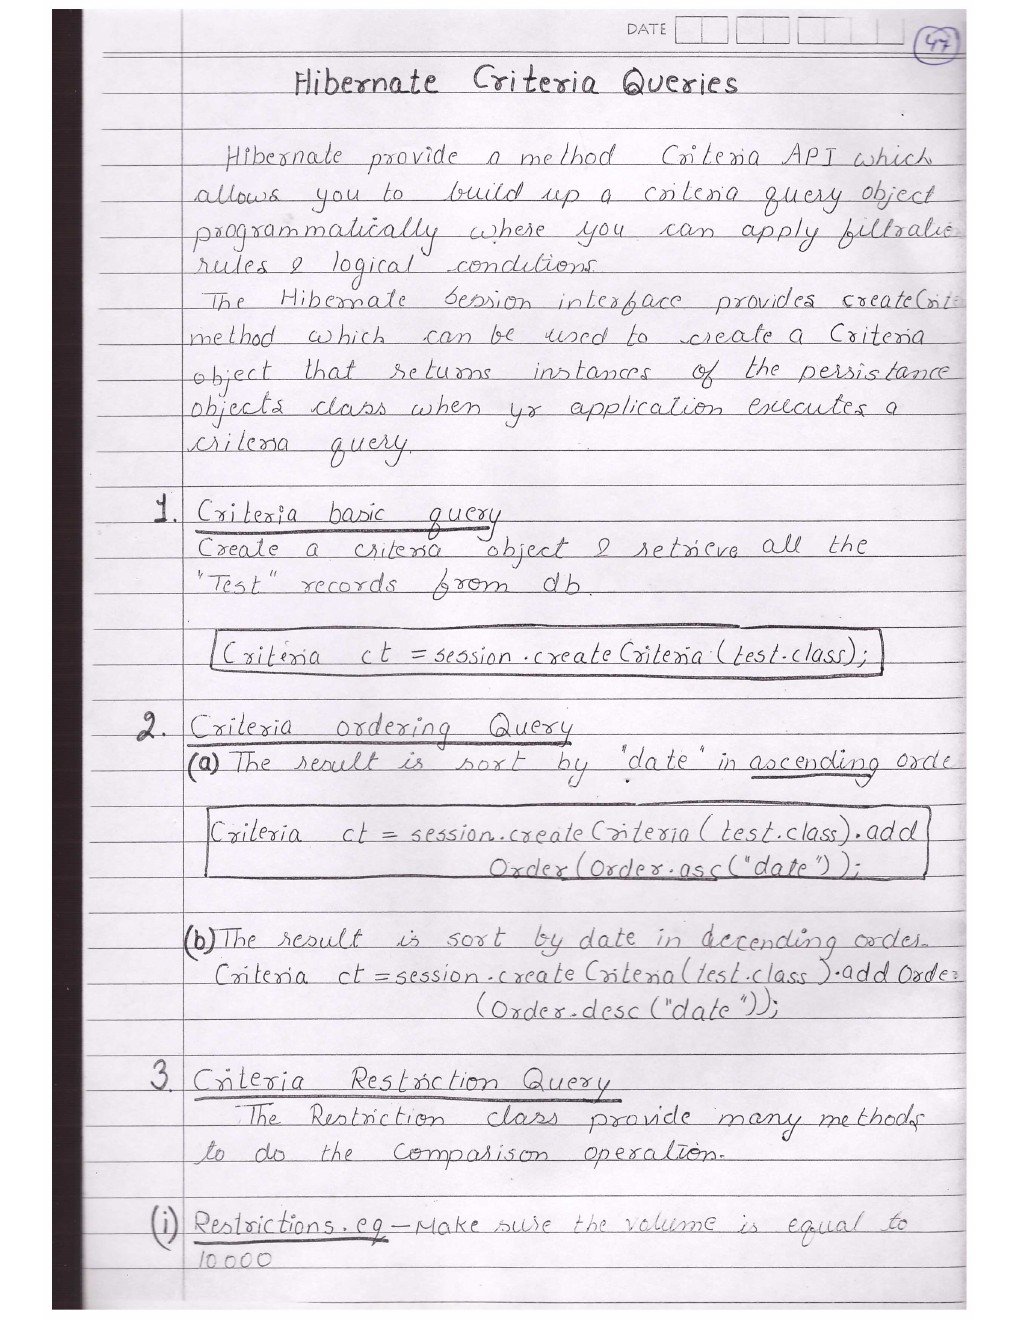 DATE
47
Hibernate Criteria Queries
Hibernate provide a method Criteria API which
allows you to build up a criteria query object
programmatically where you can apply filtratio
rules & logical conditions
The Hibernate Session interface provides createCrite
method which can be used to create a Criteria
object that returns instances of the persistance
objects class when yr application executes a
criteria query.
1. Criteria basic query
Create a criteria object & retrieve all the
"Test" records from db.
Criteria ct = session.createCriteria(test.class);
2. Criteria ordering Query
(a) The result is sort by "date" in ascending orde
Criteria ct = session.createCriteria(test.class).add
Order(Order.asc("date"));
(b) The result is sort by date in decending order.
Criteria ct = session.createCriteria(test.class).addOrder
(Order.desc("date"));
3. Criteria Restriction Query
The Restriction class provide many methods
to do the Comparison operation.
(i) Restrictions.eq – Make sure the volume is equal to
10000